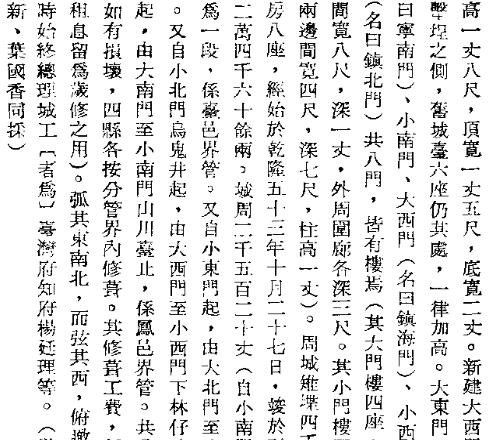 高一丈八尺，頂寬一丈五尺，底寬二丈。新建大西門
壘埕之側，舊城臺六座仍其處，一律加高。大東門
曰寧南門）、小南門、大西門（名曰鎮海門）、小西
（名曰鎮北門）共八門，皆有樓焉（其大門樓四座，
間寬八尺，深一丈，外周圍廊各深三尺。其小門樓
兩邊間寬四尺，深七尺，柱高一丈）。周城雉堞四千
房八座，經始於乾隆五十三年十月二十七日，竣於
二萬四千六十餘兩。城周二千五百二十丈（自小南
為一段，係臺邑界管。又自小東門起，由大北門至
。又自小北門烏鬼井起，由大西門至小西門下林仔
起，由大南門至小南門山川臺止，係鳳邑界管。共
如有損壞，四縣各按分管界內修葺。其修葺工費，
租息留為歲修之用）。弧其東南北，而弦其西，俯邀
時始終總理城工〔者為〕臺灣府知府楊廷理等。（
新、葉國香同採）